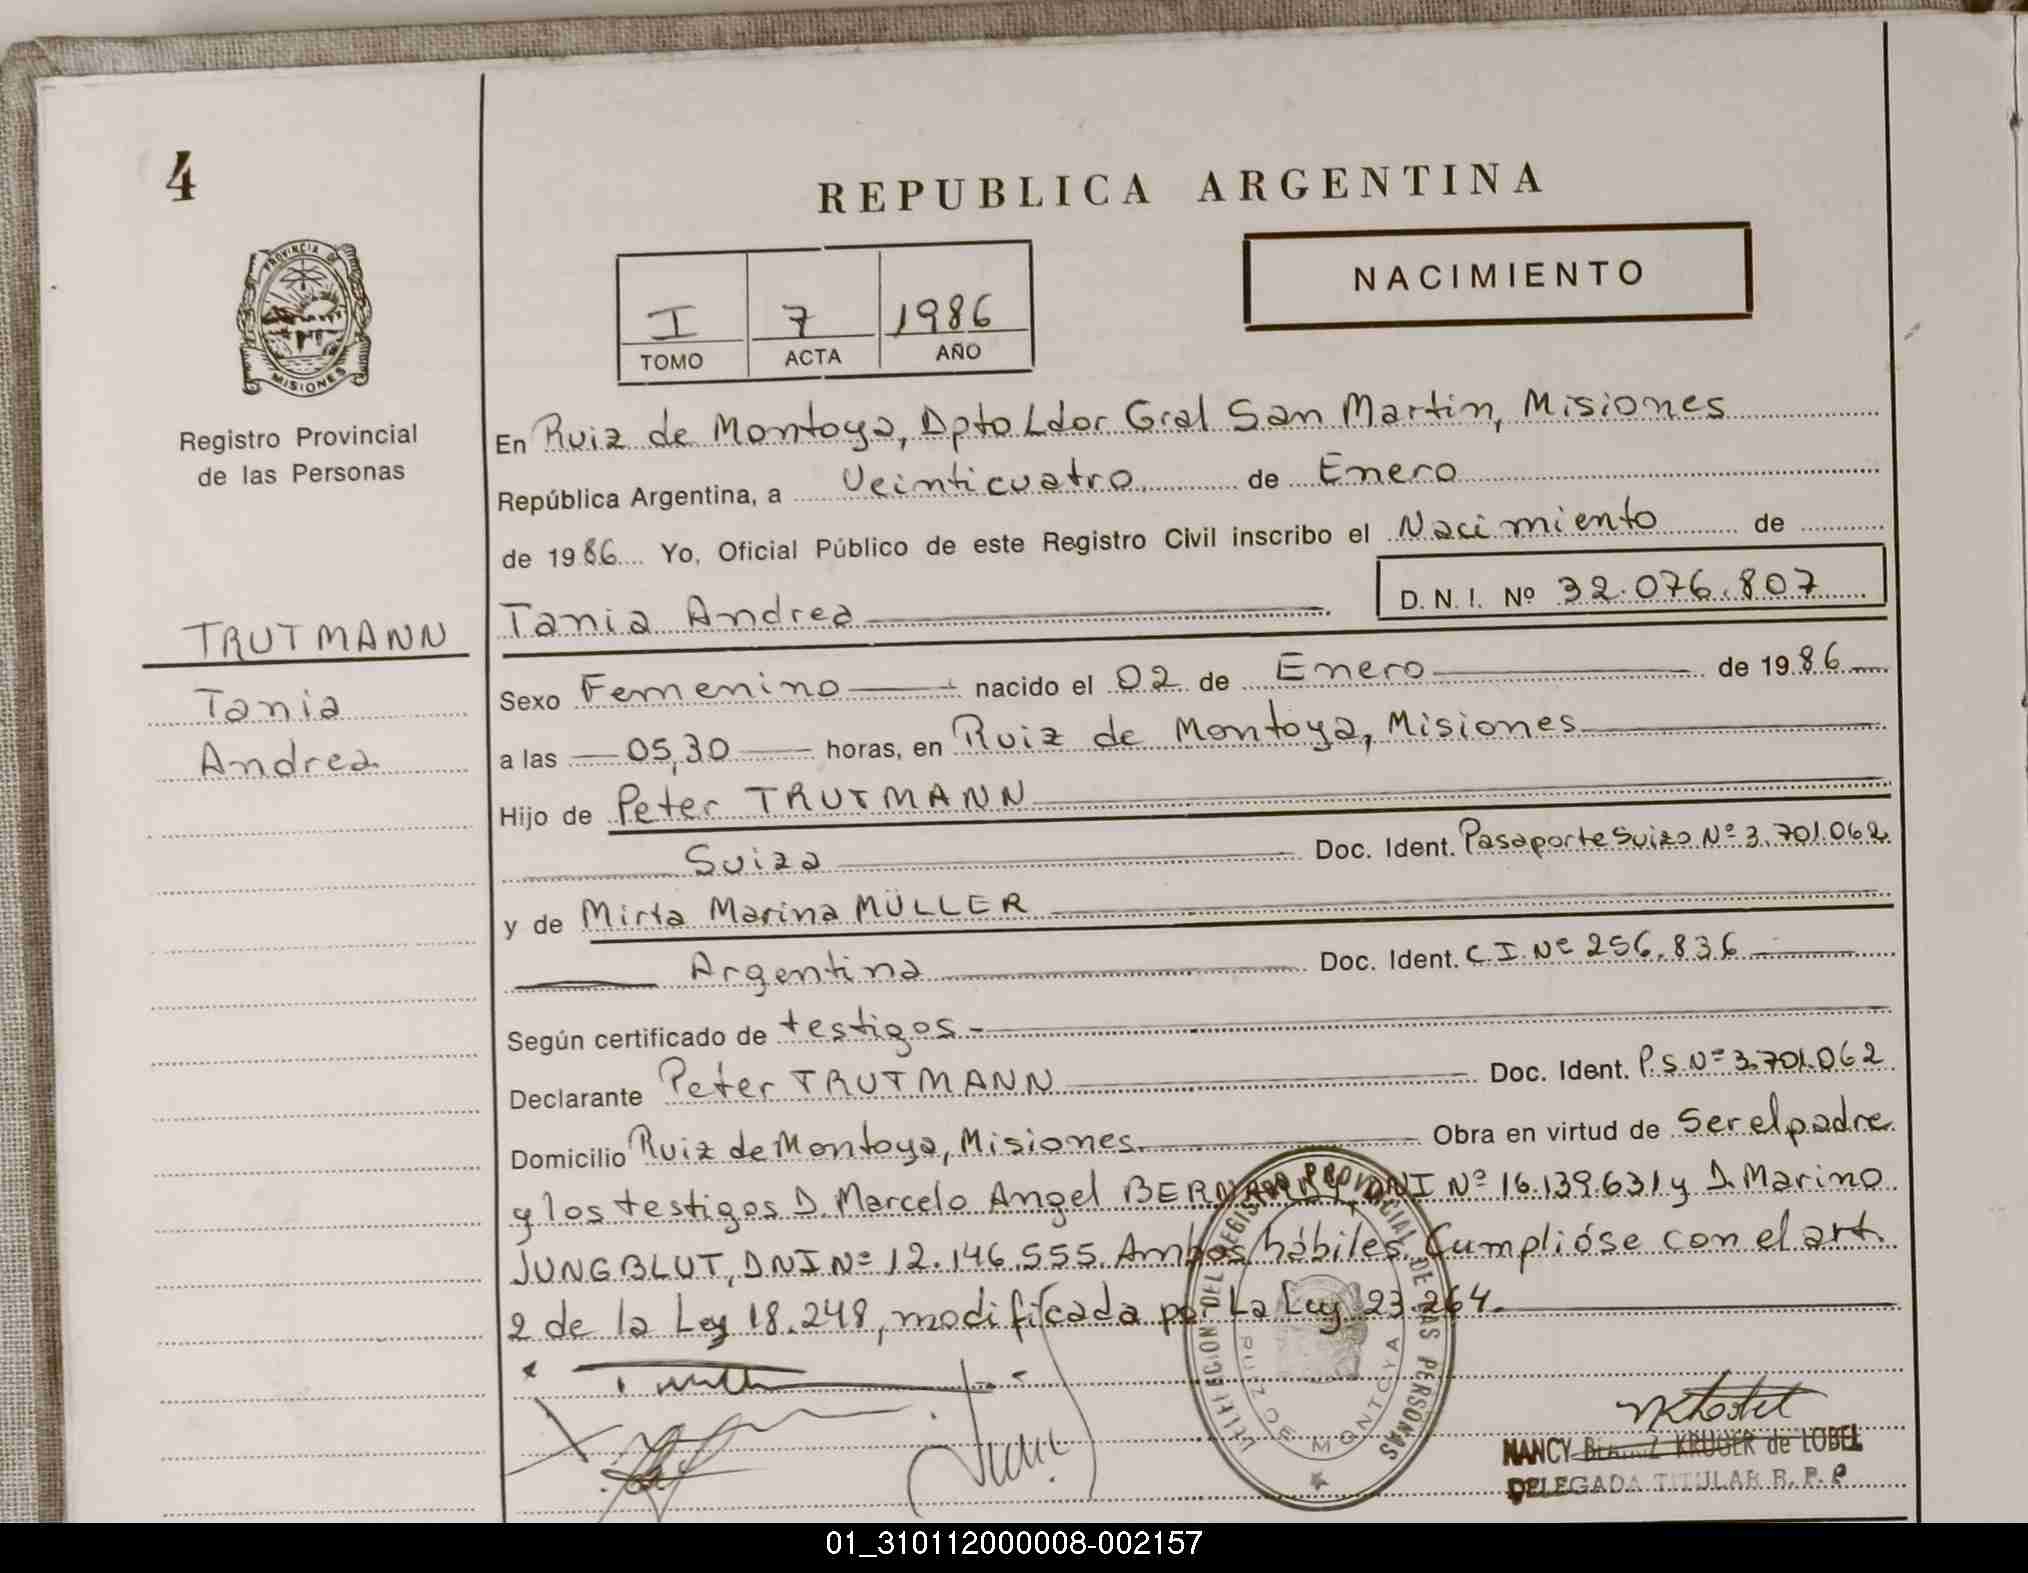 4
REPUBLICA ARGENTINA
PROVINCIA DE
MISIONES
NACIMIENTO
I 7 1986
TOMO ACTA AÑO
Registro Provincial
de las Personas
En Ruiz de Montoya, Dpto Ldor Gral San Martin, Misiones
República Argentina, a Veinticuatro de Enero
de 1986 Yo, Oficial Público de este Registro Civil inscribo el Nacimiento de
Tania Andrea D.N.I. Nº 32.076.807
TRUTMANN
Tania
Andrea
Sexo Femenino nacido el 02 de Enero de 1986
a las 05,30 horas, en Ruiz de Montoya, Misiones
Hijo de Peter TRUTMANN
Suiza Doc. Ident. Pasaporte Suizo Nº 3.701.062
y de Mirta Marina MÜLLER
Argentina Doc. Ident. C.I. Nº 256.836
Según certificado de testigos.-
Declarante Peter TRUTMANN Doc. Ident. P.S. Nº 3.701.062
Domicilio Ruiz de Montoya, Misiones. Obra en virtud de Ser el padre
y los testigos D. Marcelo Angel DNI Nº 16.139.631 y D. Marino
JUNGBLUT, DNI Nº 12.146.555. Ambos hábiles. Cumplióse con el art.
2 de la Ley 18.248, modificada por La Ley 23.264.
DELEGACION DEL REGISTRO PROVINCIAL DE LAS PERSONAS
RUIZ DE MONTOYA
NANCY KRUGER de LOBEL
DELEGADA TITULAR R. P. P.
01_310112000008-002157